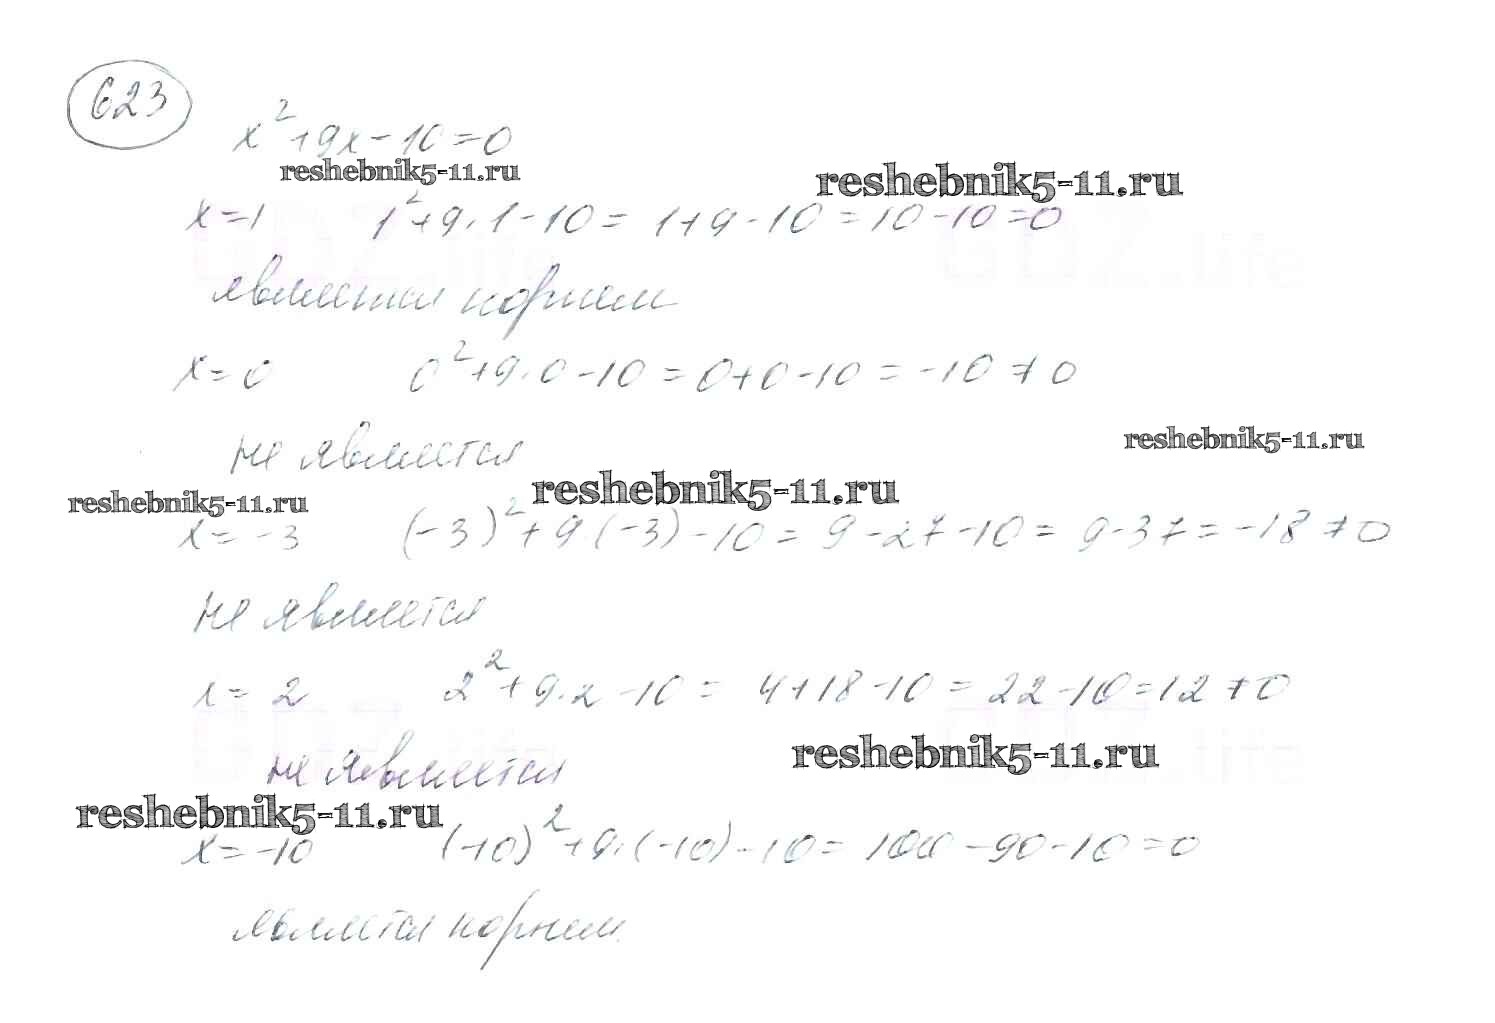 623
x²+9x-10=0
reshebnik5-11.ru
reshebnik5-11.ru
x=1 1²+9·1-10= 1+9-10=10-10=0
GDZ.life GDZ.life
является корнем
x=0 0²+9·0-10=0+0-10=-10≠0
не является
reshebnik5-11.ru
reshebnik5-11.ru
reshebnik5-11.ru
x=-3 (-3)²+9(-3)-10=9-27-10=9-37=-18≠0
не является
x=2 2²+9·2-10= 4+18-10=22-10=12≠0
GDZ.life GDZ.life
не является
reshebnik5-11.ru
reshebnik5-11.ru
x=-10 (-10)²+9·(-10)-10=100-90-10=0
является корнем.